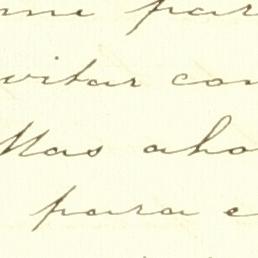 me par
vitar con
Mas aho
para e